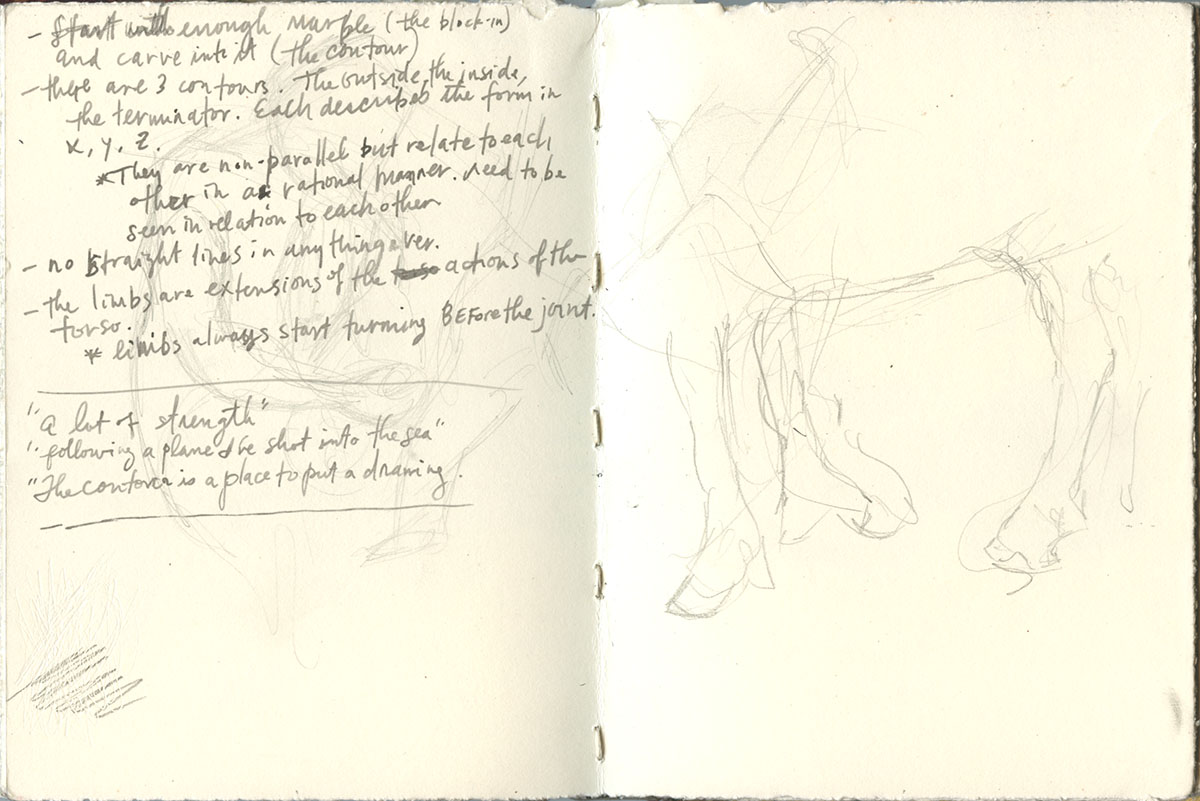 - Start with enough marble (the block-in)
and carve into it (the contour)
- there are 3 contours. The outside, the inside,
the terminator. Each describes the form in
x, y, z.
* They are non-parallel but relate to each
other in a rational manner. Need to be
seen in relation to each other
- no straight lines in anything ever.
- the limbs are extensions of the actions of the
torso.
* limbs always start turning BEFore the joint.
"a lot of strength"
"following a plane I've shot into the sea"
"The contour is a place to put a drawing.